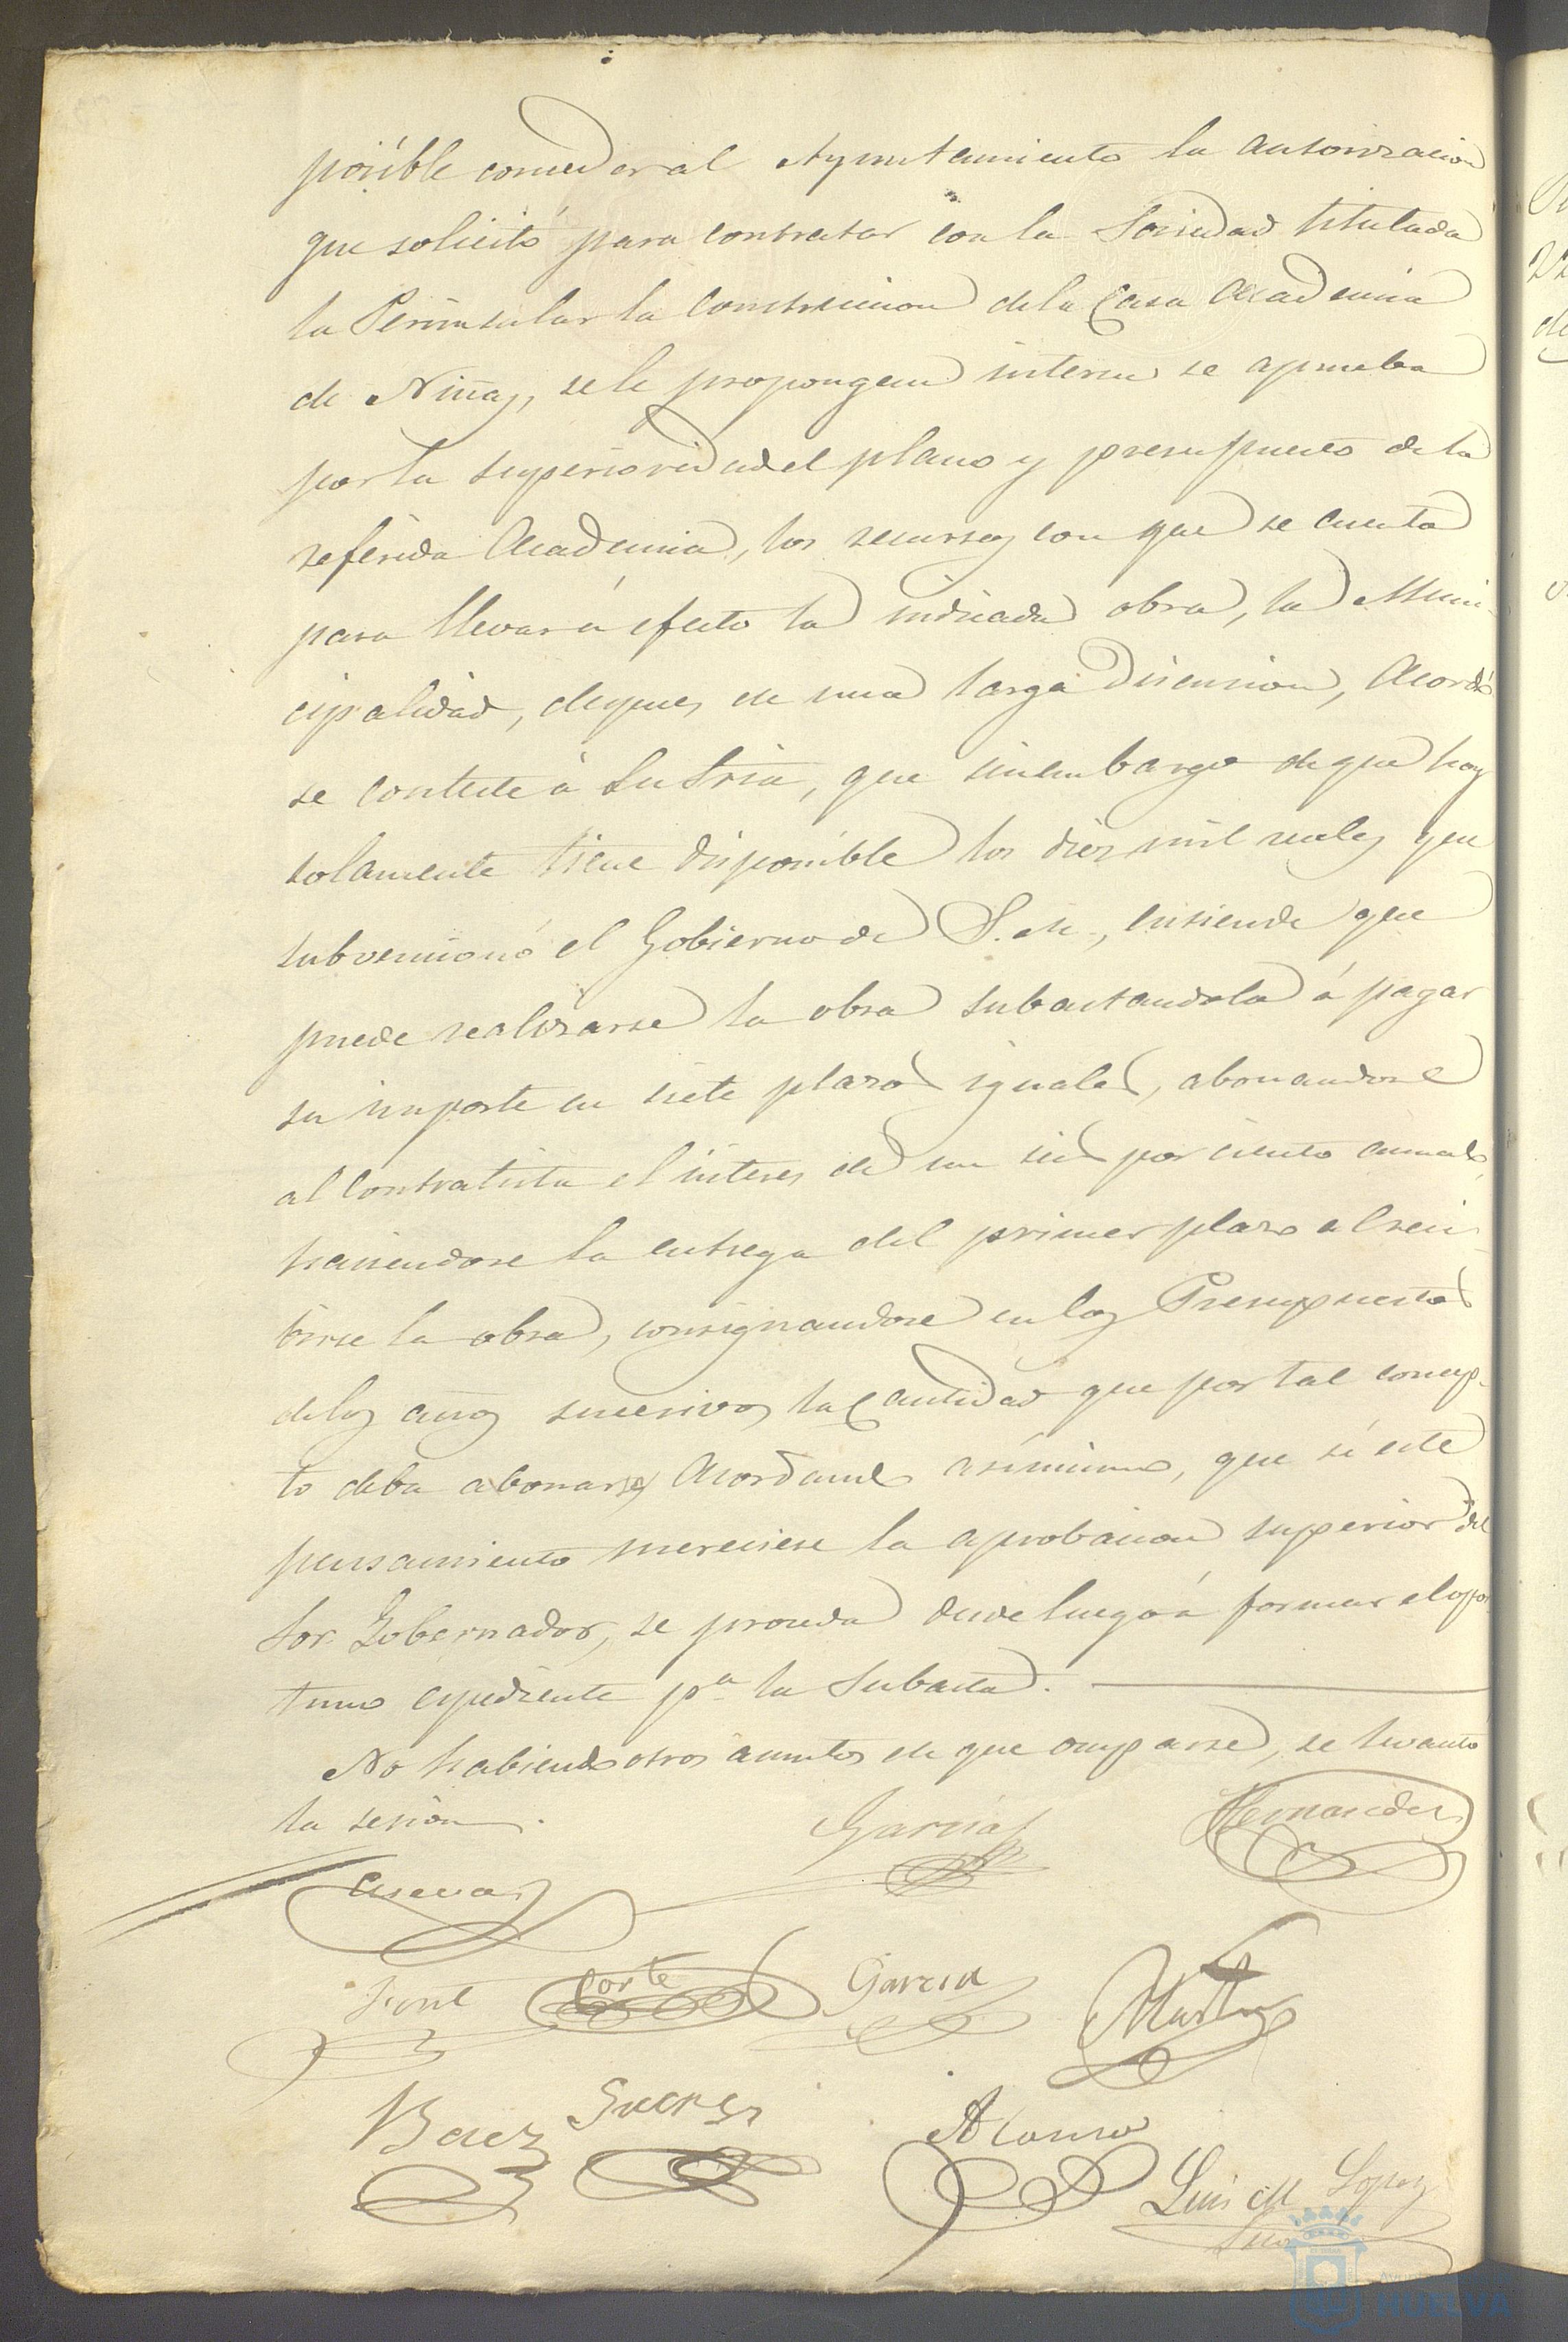 posible conceder al Ayuntamiento la autorizacion
que solicitó para contratar con la Sociedad titulada
la Peninsular la construccion de la Casa Academia
de Niñas, se le propongan interin se aprueba
por la superioridad el plano y presupuesto de la
referida Academia, los recursos con que se cuenta
para llevar á efecto la indicada obra, la Muni-
cipalidad, despues de una larga discusion, Acordó
se conteste á Su Sria, que sin embargo de que hoy
solamente tiene disponible los diez mil reales que
subvencionó el Gobierno de S. M., entiende que
puede realizarse la obra subastandola á pagar
su importe en siete plazos iguales, abonandose
al Contratista el interes de un seis por ciento anual,
haciendose la entrega del primer plazo al reci-
birse la obra, consignandose en los Presupuestos
de los años sucesivos la Cantidad que por tal concep-
to deba abonarse, Acordando asimismo, que si este
pensamiento mereciese la aprobacion superior del
Sor. Gobernador, se proceda desde luego á formar el opor
tuno espediente pa la Subasta.
No habiendo otros asuntos de que ocuparse, se levantó
la sesion.
Garcia
Hernandez
Corte
Garcia
Martin
Baez
Suarez
Alonso
Luis M Lopez
HUELVA